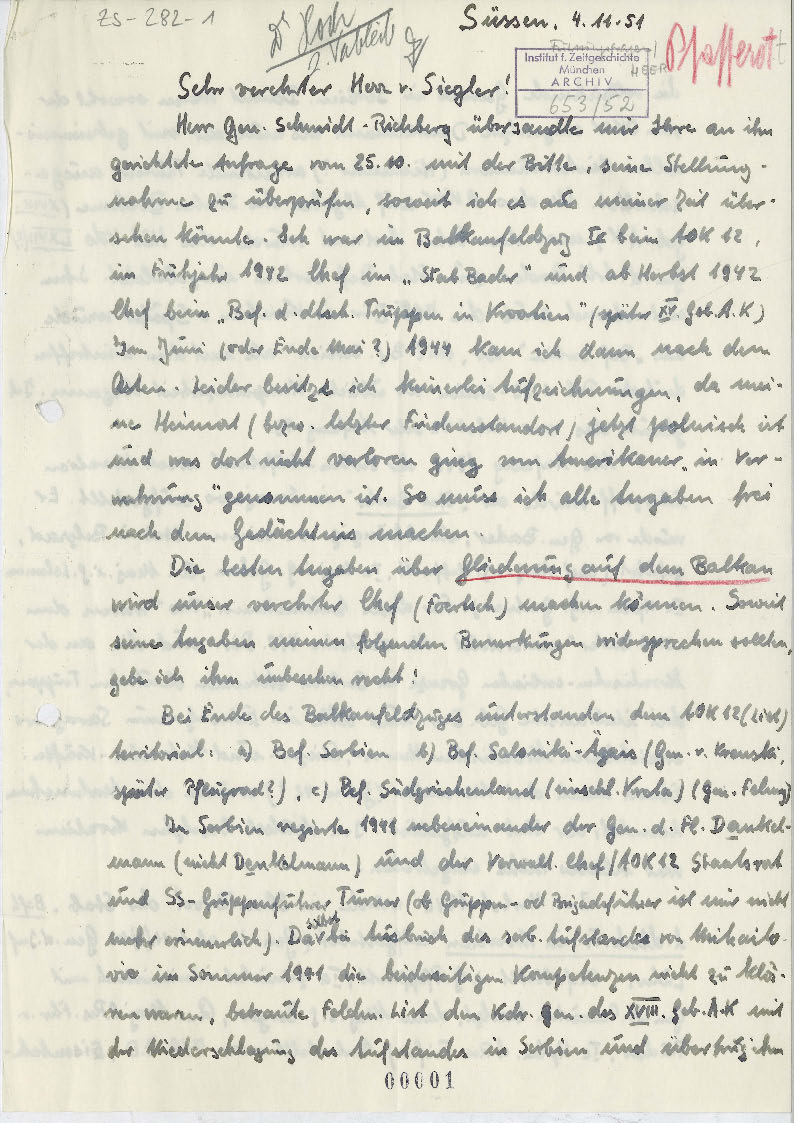 ZS-282-1
Süssen, 4.11.51
Dr Hoch
Pfafferott
HEER
Institut f. Zeitgeschichte
München
ARCHIV
653/52
Sehr verehrter Herr v. Siegler!
Herr Gen. Schmidt-Richberg übersandte mir Ihre an ihn
gerichtete Anfrage vom 25.10. mit der Bitte, seine Stellung-
nahme zu überprüfen, soweit ich es aus meiner Zeit über-
sehen könnte. Ich war im Balkanfeldzug Ic beim AOK 12,
im Frühjahr 1942 Chef im „Stab Bader" und ab Herbst 1942
Chef beim „Bef. d. dtsch. Truppen in Kroatien" (später XV. Geb.A.K)
Im Juni (oder Ende Mai?) 1944 kam ich dann nach dem
Osten. Leider besitze ich keinerlei Aufzeichnungen, da mei-
ne Heimat (bezw. letzter Fridensstandort) jetzt polnisch ist
und was dort nicht verloren ging vom Amerikaner „in Ver-
wahrung" genommen ist. So muss ich alle Angaben frei
nach dem Gedächtnis machen.
Die besten Angaben über Gliederung auf dem Balkan
wird unser verehrter Chef (Foertsch) machen können. Soweit
seine Angaben meinen folgenden Bemerkungen widersprechen sollten,
gebe ich ihm unbesehen recht!
Bei Ende des Balkanfeldzuges understanden dem AOK 12 (List)
territorial: a) Bef. Serbien b) Bef. Saloniki-Ägäis (Gen. v. Krenski,
später Pflugrad?), c) Bef. Südgriechenland (einschl. Kreta) (Gen. Felmy)
In Serbien regierte 1941 nebeneinander der Gen. d. Fl. Dankel-
mann (nicht Denkelmann) und der Verwalt. Chef/AOK 12 Staatsrat
und SS-Gruppenführer Turner (ob Gruppen- od Brigadeführer ist mir nicht
mehr erinnerlich). Da bei Ausbruch des serb. Aufstandes von Mihailo-
vic im Sommer 1941 die beiderseitigen Kompetenzen nicht zu klä-
ren waren, betraute Feldm. List den Kdr. Gen. des XVIII. Geb.A.K mit
der Niederschlagung des Aufstandes in Serbien und übertrug ihm
00001